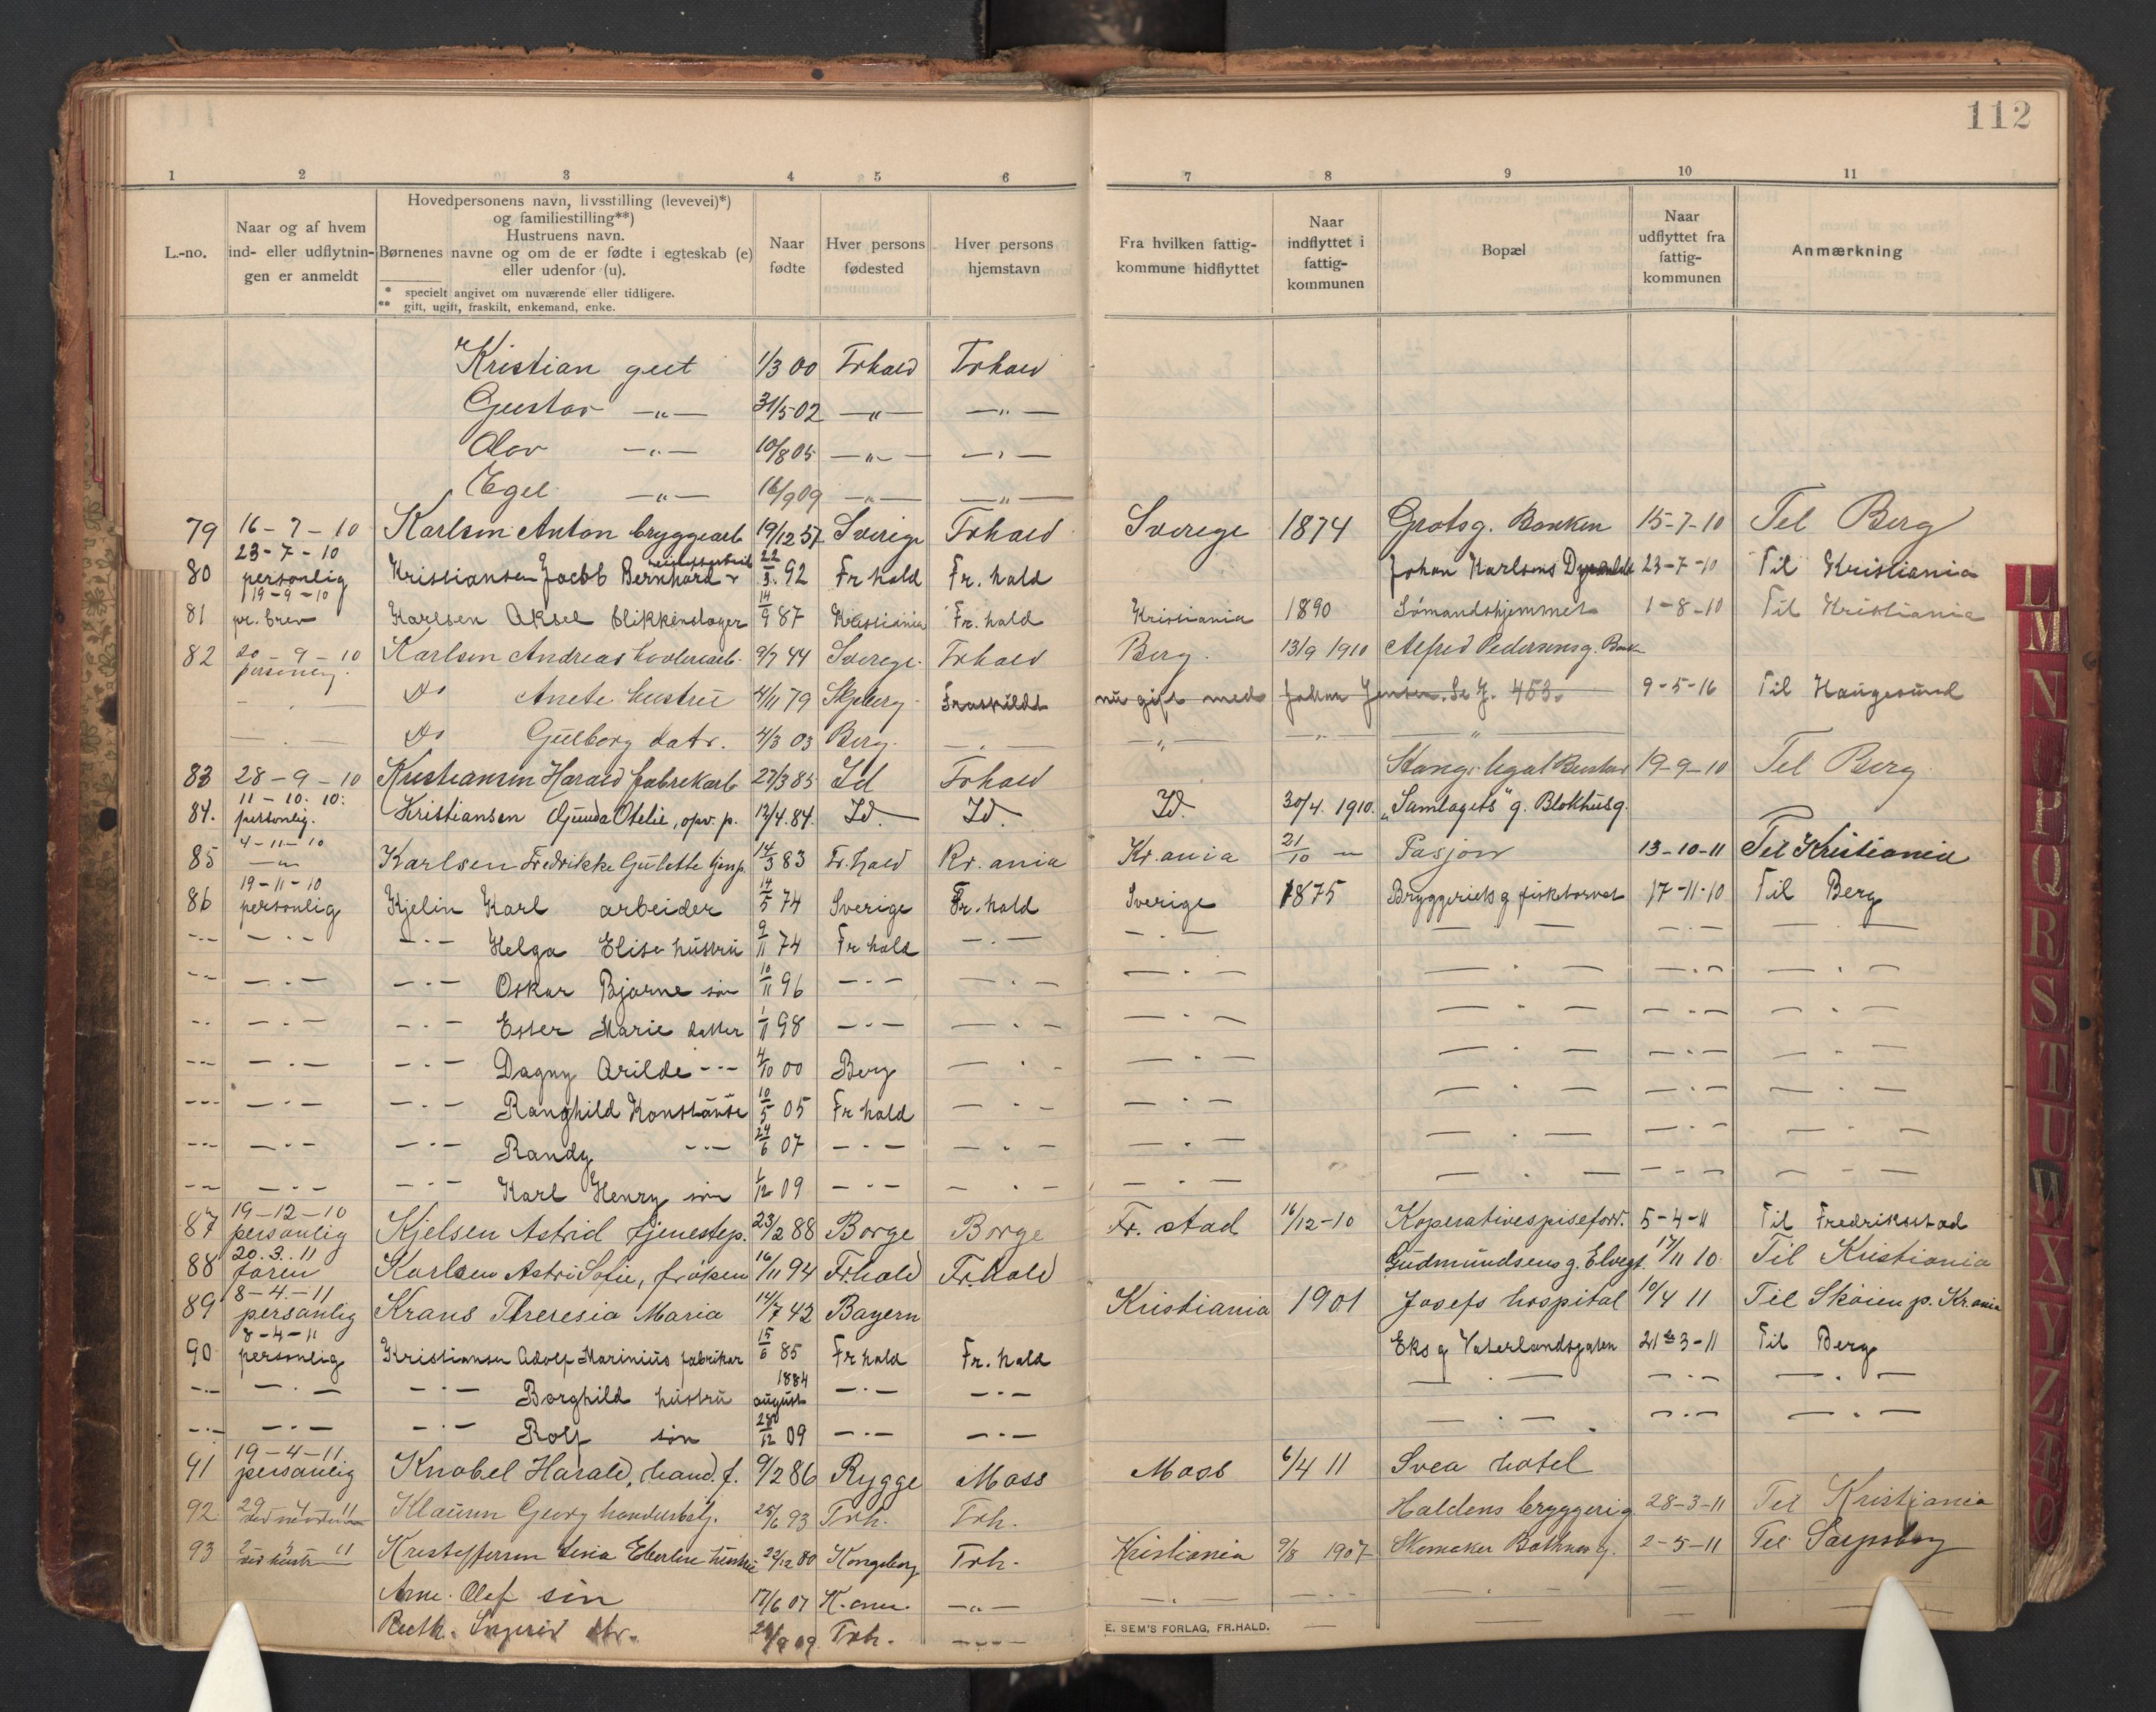 112
1 2 3 4 5 6 7 8 9 10 11
L.-no.
Naar og af hvem
ind- eller udflytnin-
gen er anmeldt
Hovedpersonens navn, livsstilling (levevei)*)
og familiestilling**)
Hustruens navn.
Børnenes navne og om de er fødte i egteskab (e)
eller udenfor (u).
* specielt angivet om nuværende eller tidligere.
** gift, ugift, fraskilt, enkemand, enke.
Naar
fødte
Hver persons
fødested
Hver persons
hjemstavn
Fra hvilken fattig-
kommune hidflyttet
Naar
indflyttet i
fattig-
kommunen
Bopæl
Naar
udflyttet fra
fattig-
kommunen
Anmærkning
Kristian gut 1/3 00 Frhald Frhald
Gustav —"— 31/5-02 —"— —"—
Olav —"— 10/8 05 —"— —"—
Egel —"— 16/9 09 —"— —"—
79 16-7-10 Karlsen Anton bryggearb 19/12 57 Sverige Frhald Sverege 1874 Grotsg. Banken 15-7-10 Tel Berg
23-7-10
80 personlig Kristiansen Jacob Bernhard 22/3 92 Fr hald Fr. hald Johan Karlsens 23-7-10 Til Kristiania
19-9-10
81 pr. brev Karlsen Aksel blikkenslager 14/9 87 Kristiania Fr. hald Kristiania 1890 Sømandshjemmet 1-8-10 Til Kristiania
82 20-9-10 Karlsen Andreas 9/7 44 Sverege Frhald Berg. 13/9 1910 Alfred Pedersensg.
personlig.
Do Anete hustru 4/11 79 Skjeberg Fraskildt nu gift med Johan Jensen. Se J. 453. 9-5-16 Til Haugesund
Do Gulborg datr. 4/3 03 Berg. — " — — " — — " —
83 28-9-10 Kristiansen Harald fabrekarb 27/3 85 Id Frhald Stangs legat 19-9-10 Tel Berg
11-10-10:
84. personlig. Kristiansen Gunda Otelie, opv. p. 12/4.84. Id. Id. Id. 30/4. 1910. "Samlagets" g. Blokhusg.
4-11-10
85 —"— Karlsen Fredrikke Gulette tjenp. 14/3 83 Fr. hald Kr. ania Kr. ania 21/10 — Pasjon 13-10-11 Til Kristiania
19-11-10
86 personlig Kjelin Karl arbeider 14/5 74 Sverige Fr. hald Sverige 1875 Bryggeriets g fisketorvet 17-11-10 Til Berg
Helga Elise hustru 9/11 74 Fr hald
Oskar Bjarne søn 10/11 96
Ester Marie datter 1/11 98
Dagny Arilde 4/10 00 Berg
Ranghild Konstanse 10/5 05 Fr hald
Randy 24/6 07
Karl Henry søn 1/12 09
19-12-10
87 personlig Kjelsen Astrid tjenestep. 23/2 88 Borge Borge Fr. stad 16/12-10 Koperativespiseforr. 5-4-11 Til Fredrikstad
20.3.11
88 faren Karlsen Astri Sofie, frøken 16/11 94 Fr.hald Fr.hald Gudmundsens g. Elvegt. 17/11 10. Til Kristiania
8-4-11
89 personlig Krans Theresia Maria 14/7 42 Bayern Kristiania 1901 Josefs hospital 10/4 11 Til Skøien p. Kr.ania
8-4-11
90 personlig Kristiansen Adolf Marinius fabrikar 15/6 85 Fr hald Fr. hald Eks g Vaterlandsgaten 21-3-11 Til Berg
Borghild hustru 1884 august
Rolf søn 28/12 09
19-4-11
91 personlig Knobel Harald, hand. f. 9/2 86 Rygge Moss Moss 6/4 11 Svea hotel
92 29-4-11 Klausen Georg handelsbetj. 25/6 93 Frh. Frh. Haldens bryggerig 28-3-11 Til Kristiania
93 2-5-11 Kristoffersen Lina Eberline hustru 22/12 80 Kongsberg Frh. Kristiania 9/8 1907 Skomaker g. 2-5-11 Tel Sarpsborg
Arne Olaf søn 17/6 07 K. ania —"—
Ruth Ingrid dtr. 09 Frh.
E. SEM'S FORLAG, FR.HALD.
L
M
N
P
Q
R
S
T
U
W
X
Y
Z
Æ
Ø